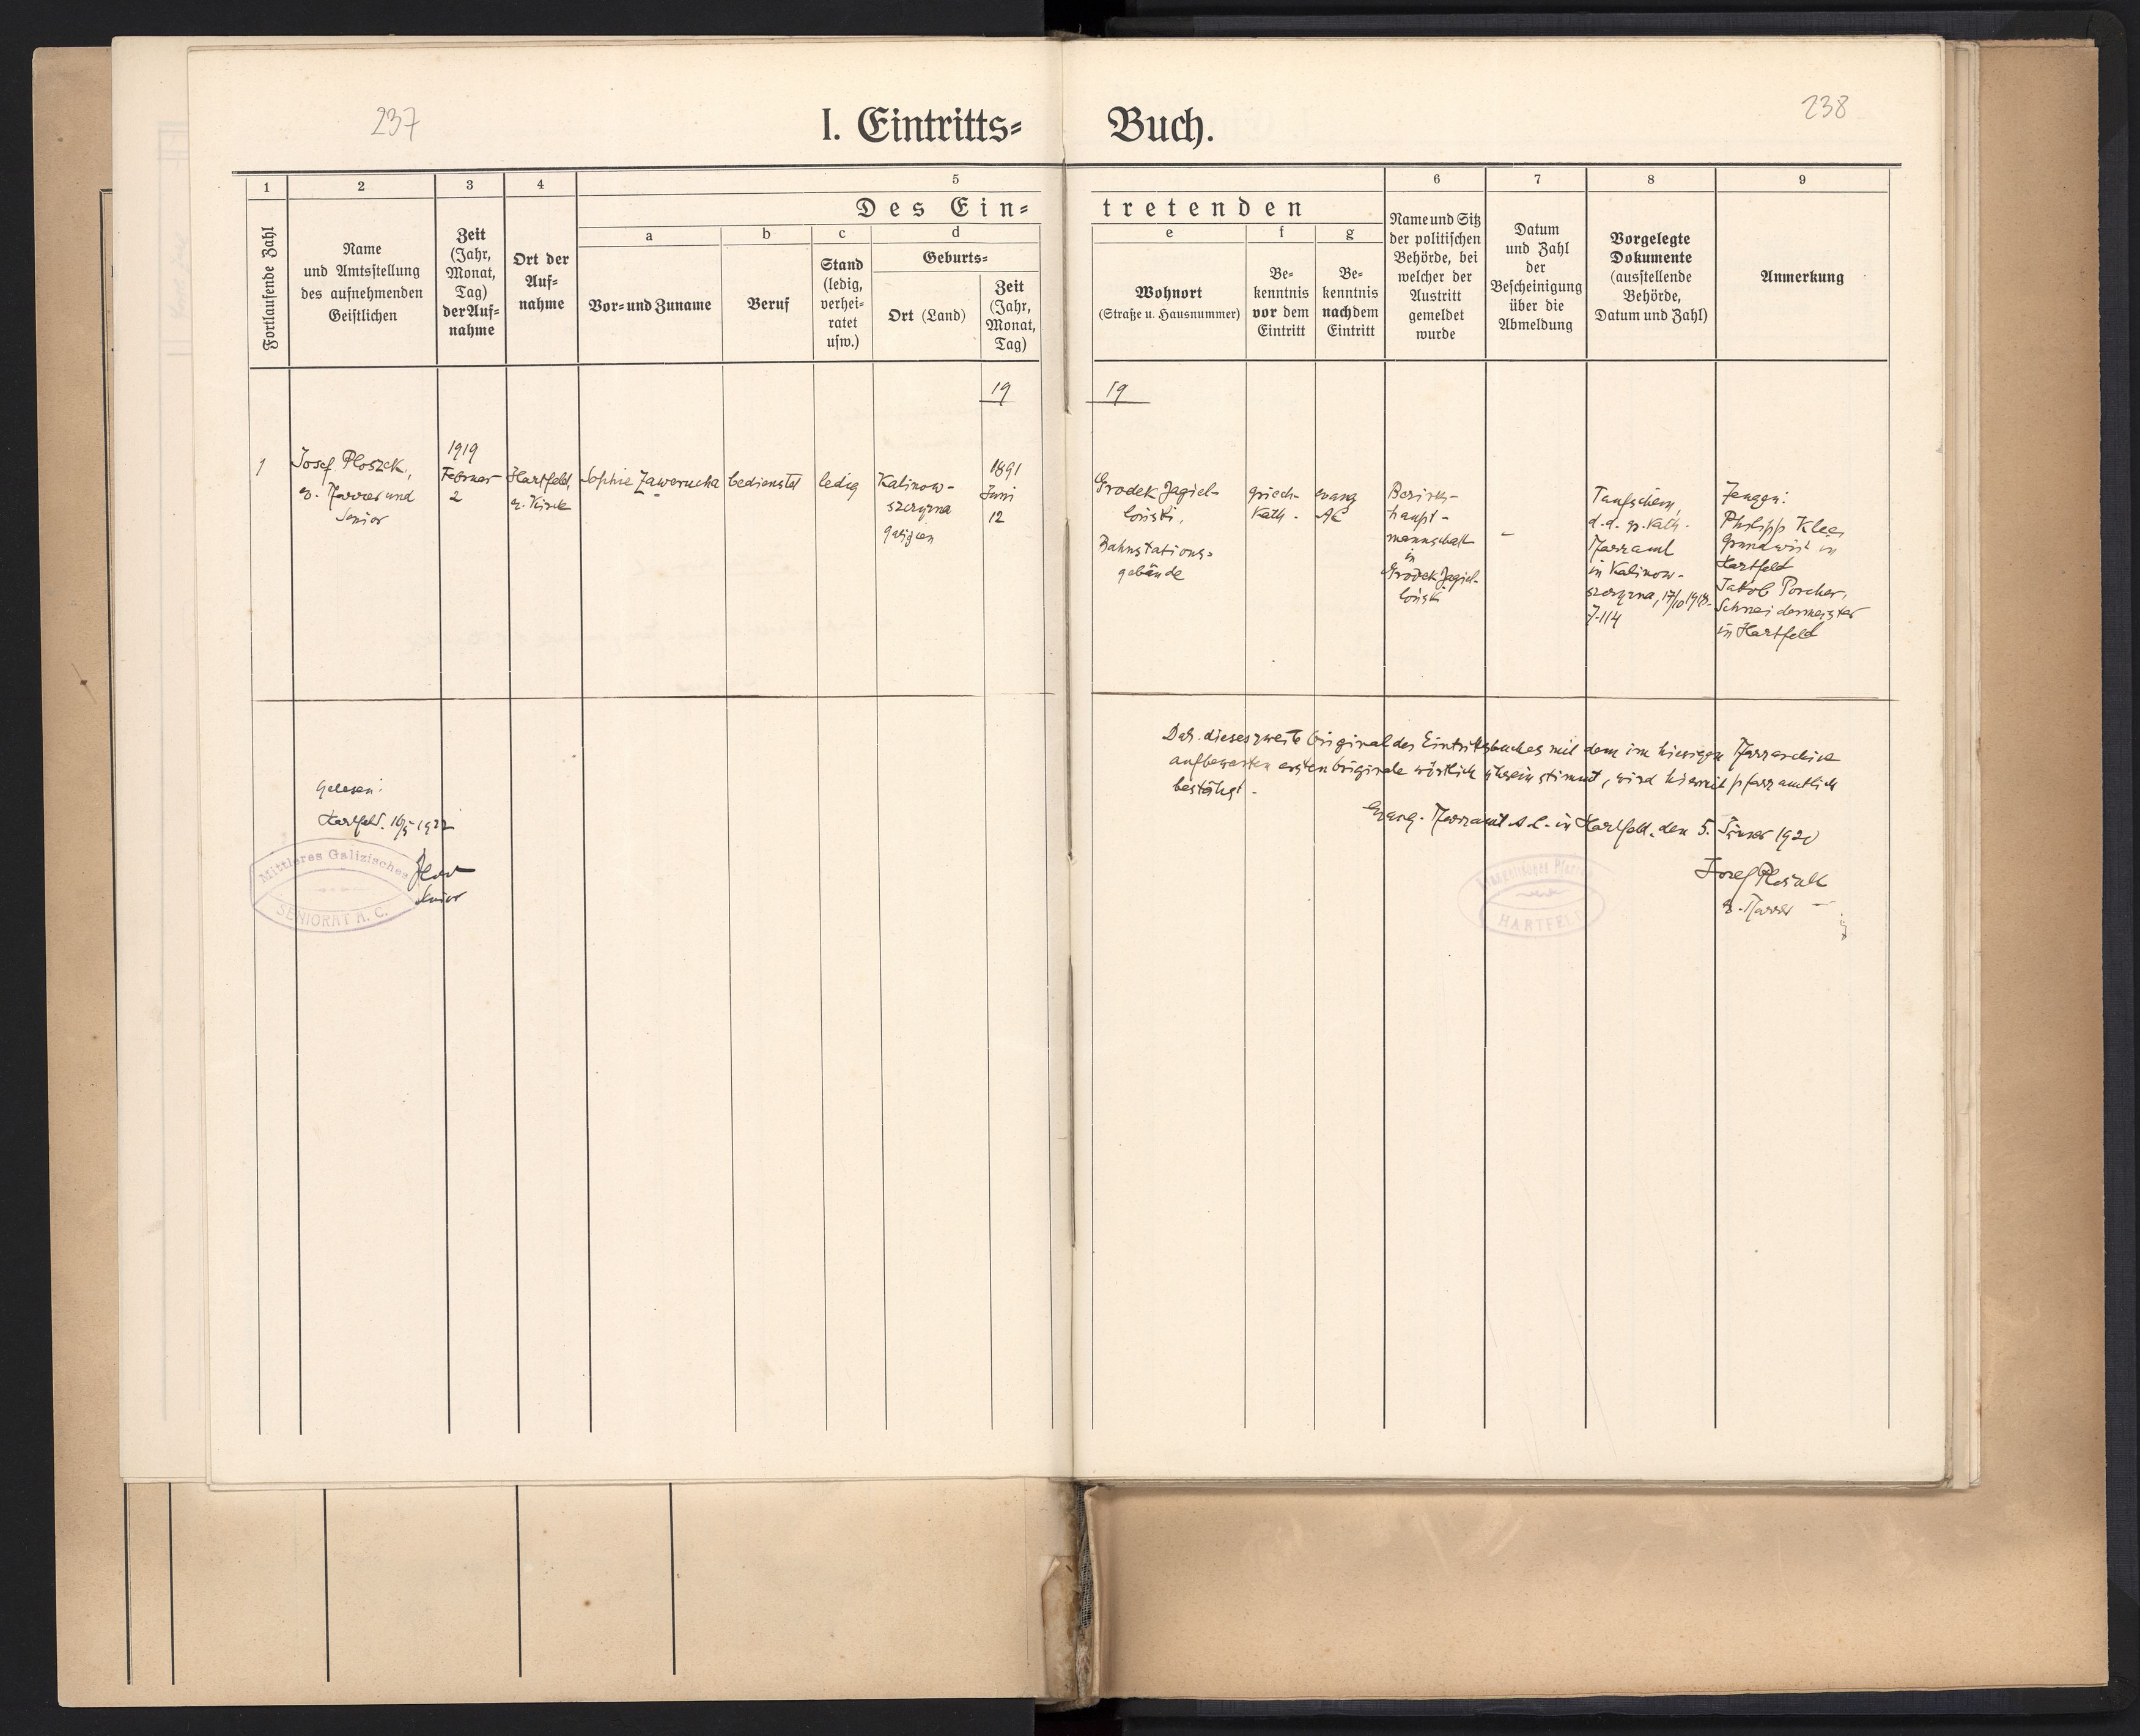 237
I. Eintritts-
Buch.
238
1
2
3
4
5
6
7
8
9
Des Ein-
tretenden
Fortlaufende Zahl
Name
und Amtsstellung
des aufnehmenden
Geistlichen
Zeit
(Jahr,
Monat,
Tag)
der Auf-
nahme
Ort der
Auf-
nahme
a
Vor- und Zuname
b
Beruf
c
Stand
(ledig,
verhei-
ratet
usw.)
d
Geburts-
Ort (Land)
Zeit
(Jahr,
Monat,
Tag)
e
Wohnort
(Straße u. Hausnummer)
f
Be-
kenntnis
vor dem
Eintritt
g
Be-
kenntnis
nach dem
Eintritt
Name und Sitz
der politischen
Behörde, bei
welcher der
Austritt
gemeldet
wurde
Datum
und Zahl
der
Bescheinigung
über die
Abmeldung
Vorgelegte
Dokumente
(ausstellende
Behörde,
Datum und Zahl)
Anmerkung
19
19
1
Josef Ploszek,
ev. Pfarrer und
Senior
1919
Februar
2
Hartfeld,
ev. Kirche
Sophie Zawerucha
bedienstet
ledig
Kalinow-
szczyzna
Galizien
1891
Juni
12
Grodek Jagiel-
loński,
Bahnstations-
gebäude
griech-
kath.
evang
AC
Bezirks-
haupt-
mannschaft
in
Grodek Jagiel-
loński
-
Taufschein,
d.d. gr. kath.
Pfarramt
in Kalinow-
szczyzna, 17/10 1918.
Z-114
Zeugen:
Philipp Klee,
Grundwirt in
Hartfeld
Jakob Porcher,
Schneidermeister
in Hartfeld
Das dieses zweite Original des Eintrittsbuches mit dem im hiesigen Pfarrarchive
aufbewarten ersten Originale wörtlich übereinstimmt, wird hiermit pfarramtlich
bestätigt.
Evang. Pfarramt A.C. in Hartfeld, den 5. Jänner 1920
Josef Ploszek
ev. Pfarrer
Evangelisches Pfarramt
HARTFELD
Gelesen:
Hartfeld, 16/5 1922
Senior
Mittleres Galizisches
SENIORAT A. C.